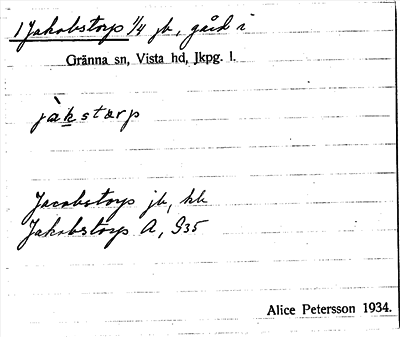 1 Jakobstorp 1/4 jb, gård i
Gränna sn, Vista hd, Jkpg. l.
jàkstærp
Jacobstorp jb, kb
Jakobstorp A, G35
Alice Petersson 1934.